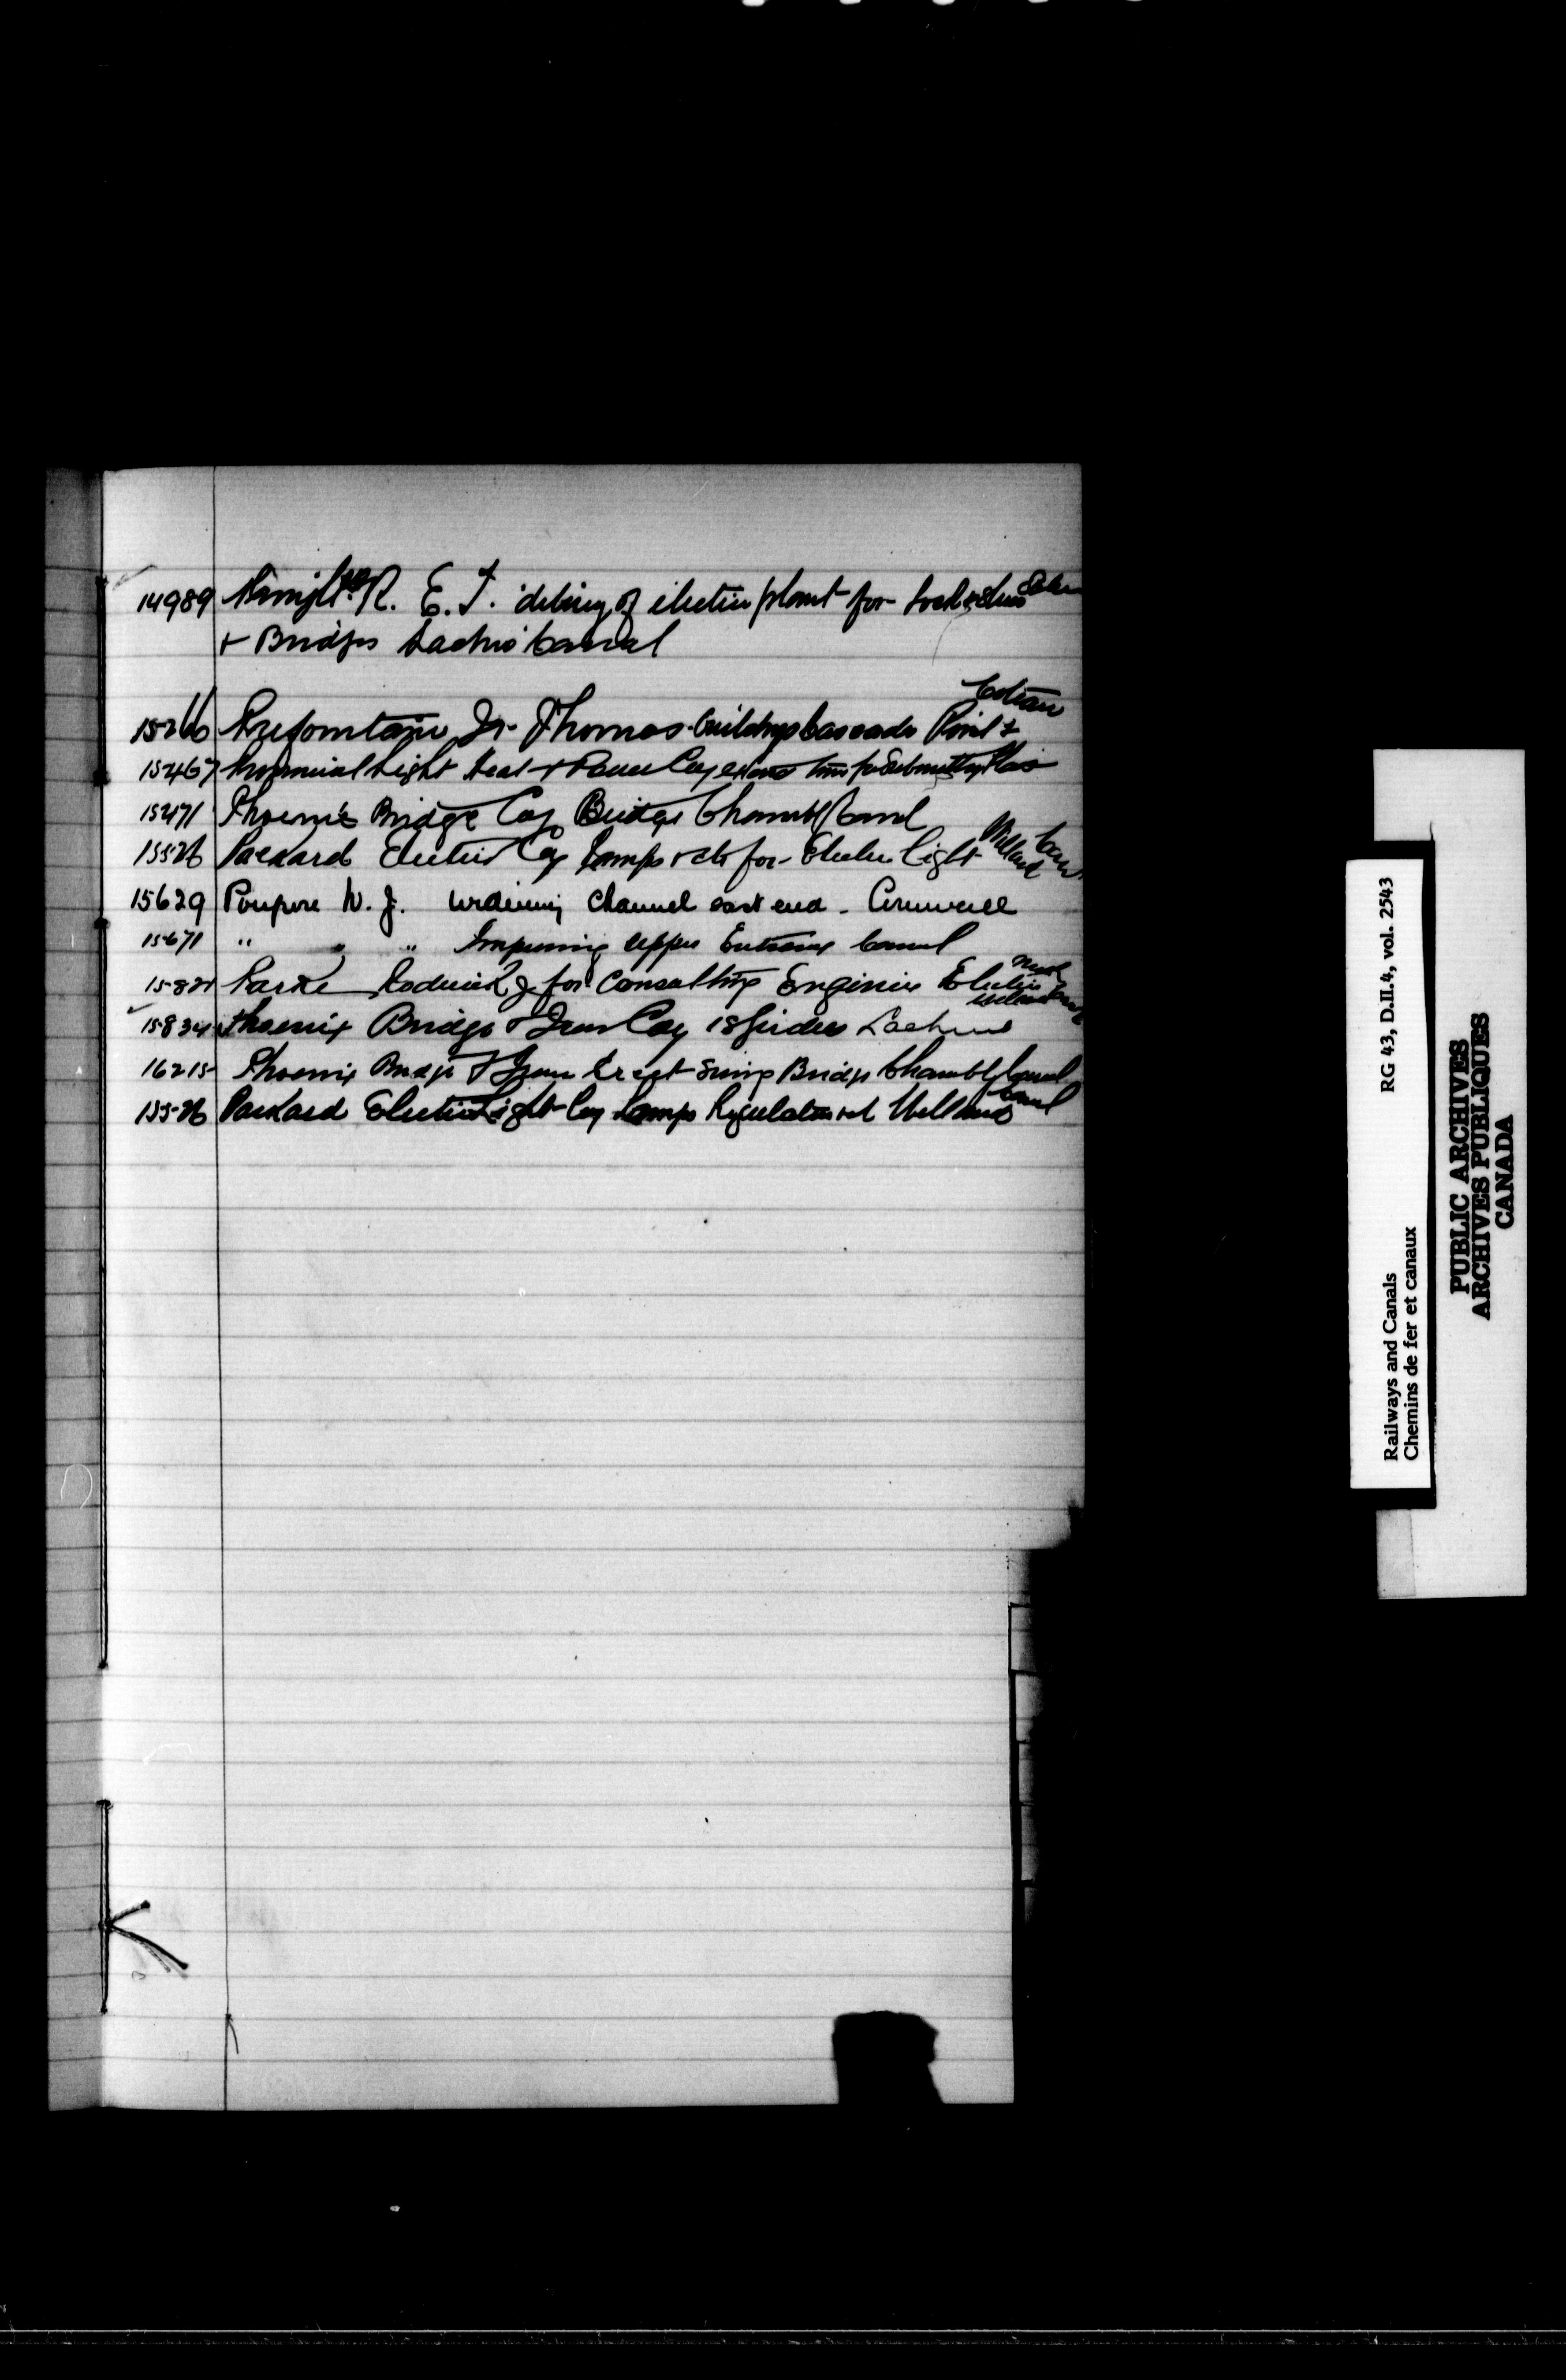 14989 R. E. T. delivery of electric plant for Lock &
+ Bridges Lachine Canal
Coteau
15266 Prefontaine Jr. Thomas buildings Cascades Point &
15467 Provincial Light Heat + Power Coy extend time for Submitting Plans
15471 Phoenix Bridge Coy Bridge Chambly Canal
15526 Packard Electric Coy Lamps & etc for Electric Light Welland Canal
15629 Poupore W. J. widening Channel east end - Cornwall
15671 " " " Improving upper Entrance Canal
15824 Parke Roderick J for Consulting Engineer Electric Welland
15834 Phoenix Bridge & Iron Coy 18 Girders Lachine
16215 Phoenix Bridge & Iron Erect Swing Bridge Chambly Canal
15526 Packard Electric Light Coy Lamps Regulators etc Welland Canal
RG 43, D.II.4, vol. 2543
Railways and Canals
Chemins de fer et canaux
PUBLIC ARCHIVES
ARCHIVES PUBLIQUES
CANADA